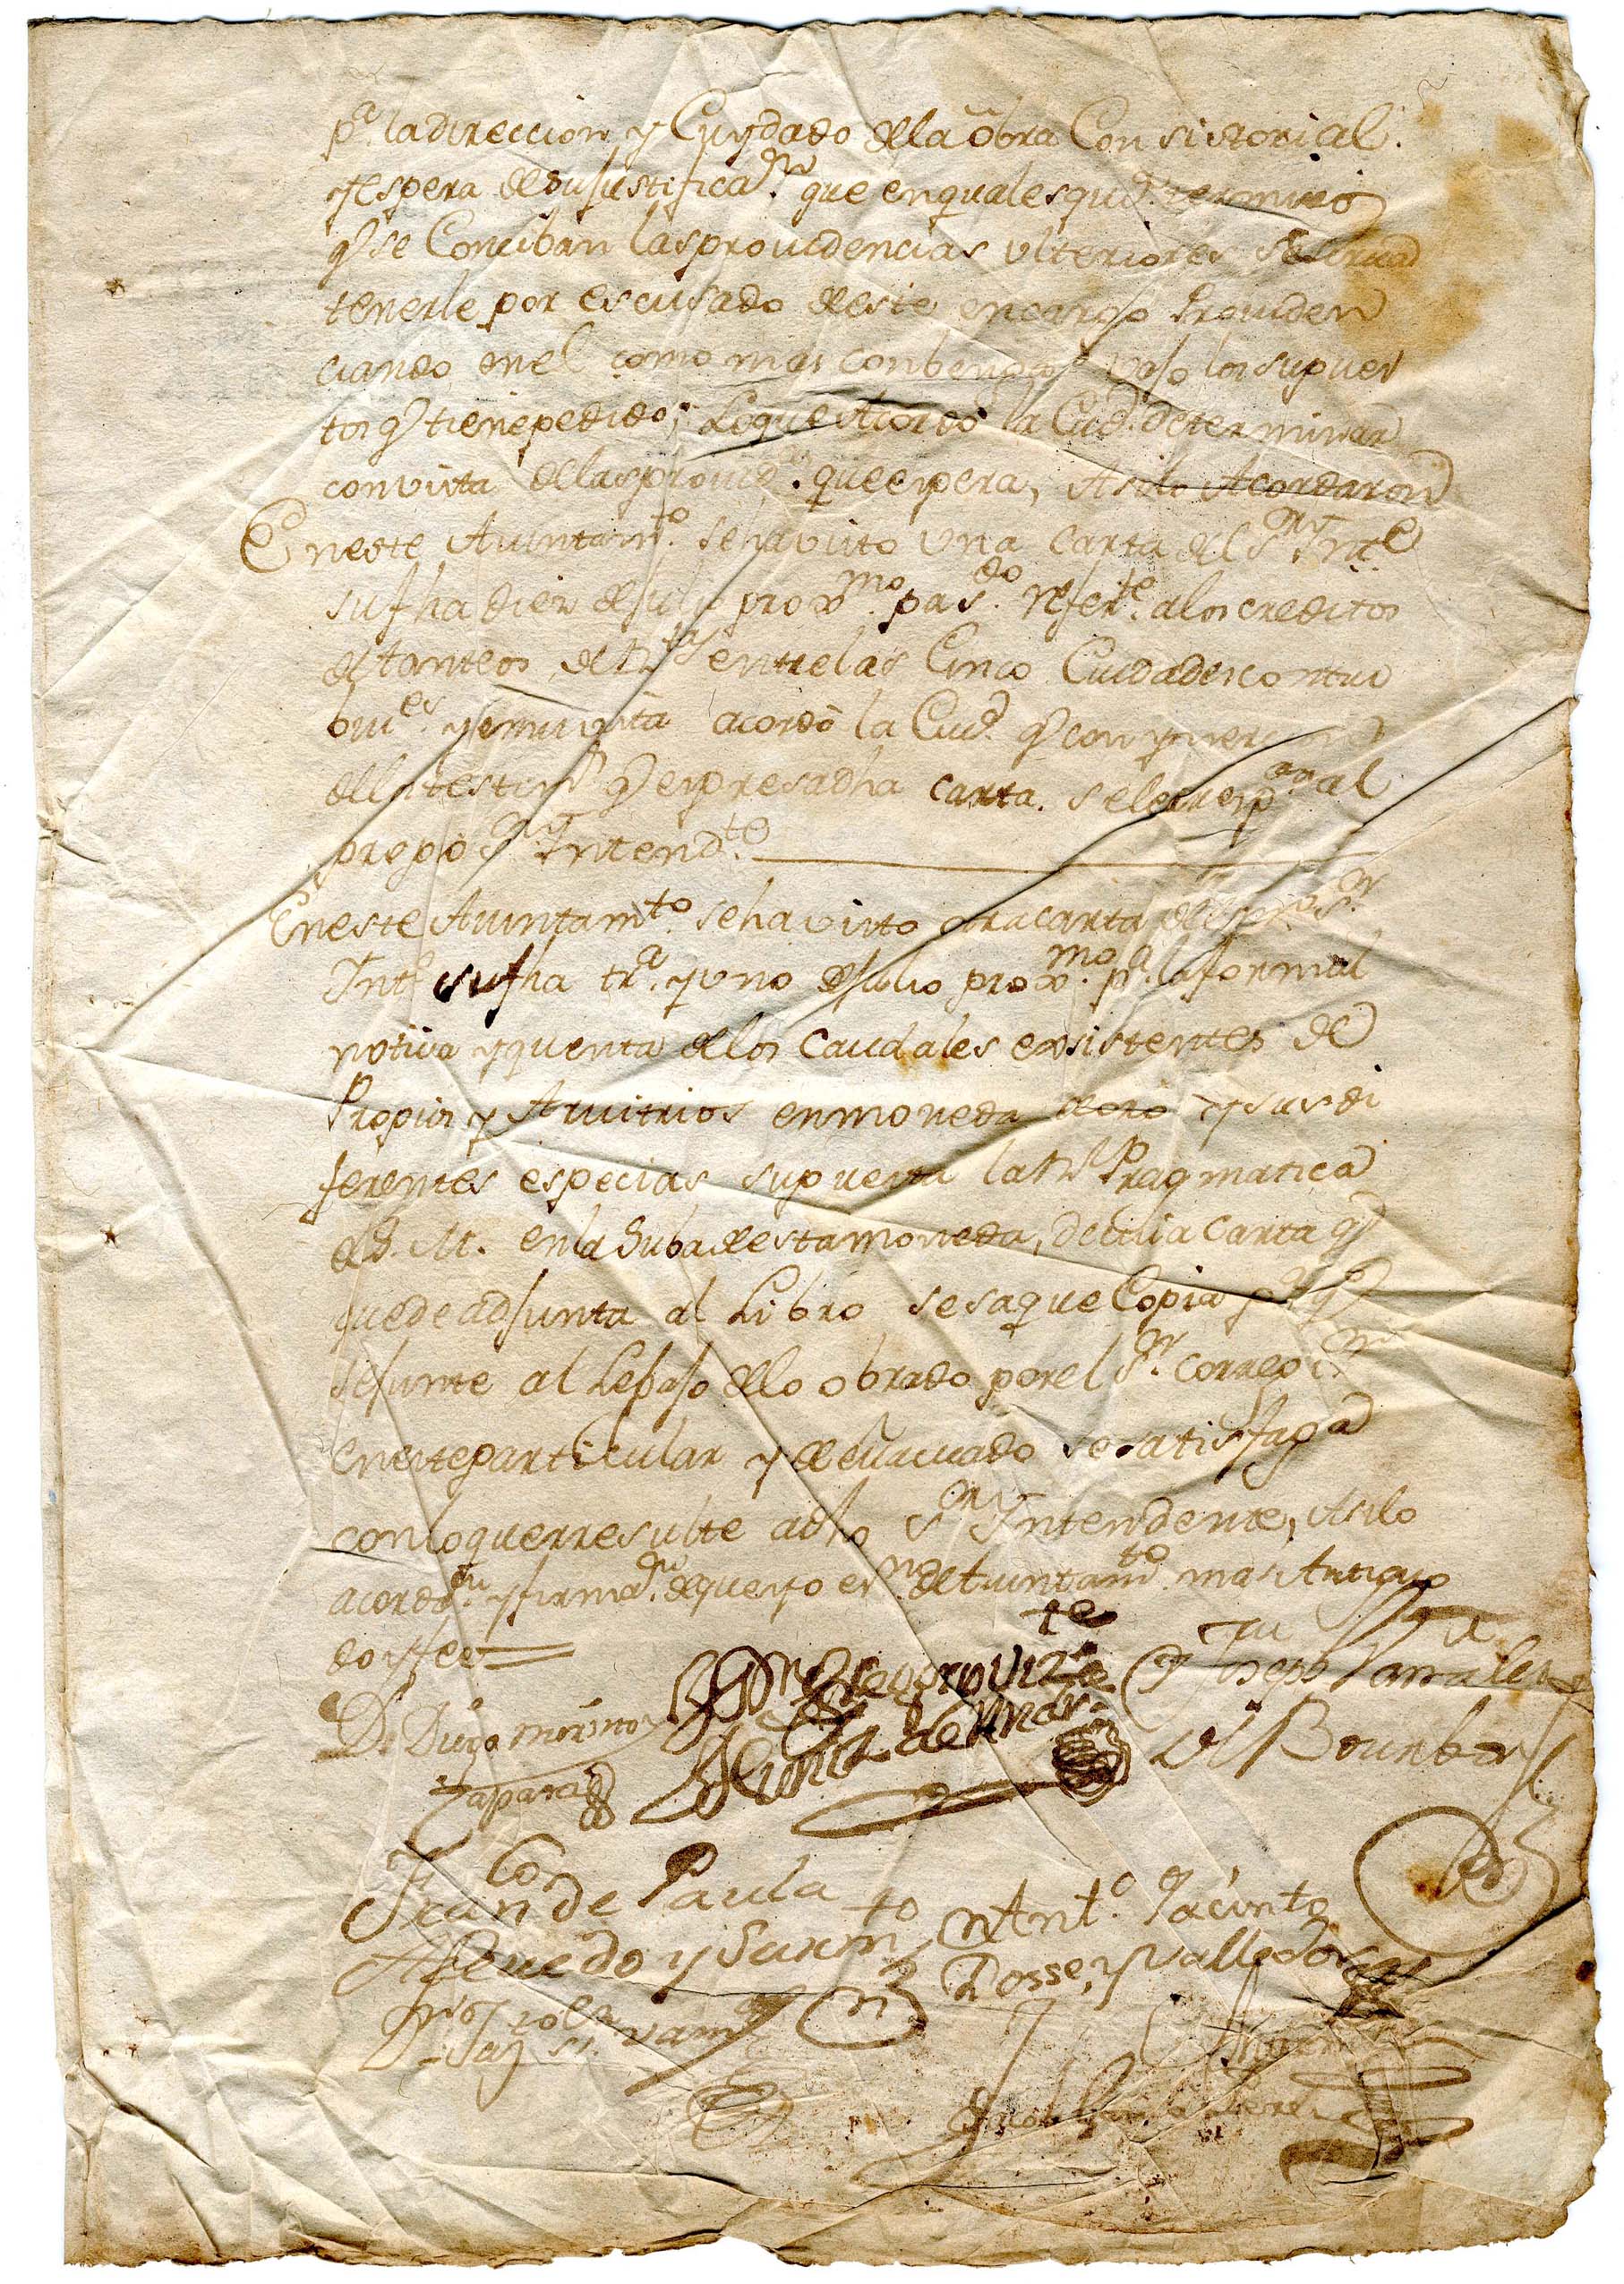 pª. la direccion y Cuydado dela obra Consistorial.
y espera de su Justificaon. que en qualesquiª. termino
q̃ se Conciban las providencias ulteriores se sirva
tenerle por escusado deste encargo Providen
ciando en el como mas conbenga vajo los supues
tos q̃ tiene pedido; Lo que Acordó la Ciud. determinar
con vista delas provids. que espera, Asilo Acordaron
En este Aiuntamto. se ha visto una carta del Sor.
su fha diez de Julio proxmo. pasdo. referte. alos creditos
de tanteos de Rs entre las Cinco Ciudades contri
buies. y en su vista acordó la Ciud. q̃ con
del testimo q̃ expresa dha carta. se le al
propio Sor. Intendte.
En este Aiuntamto. se ha visto otra carta del Sor.
Inte su fha trª. y uno de Julio proxmo. pª. la formal
notizia y quenta delos Caudales existentes de
Propios y Arvitrios en moneda de oro y sus di
ferentes especias supuesta la Rl Pragmatica
de S. M. en la Suba de esta moneda, de cuia carta q̃
quede adjunta al Libro se saque Copia pª. q̃
se junte al Legajo delo obrado por el Sor. Correxor
en este particular y de evacuado se satisfaga
con lo que rresulte a dho Sor Intendente, Asilo
acordon. y firmon. de que yo esno. de Aiuntamto. mas Antiguo
doy fee
Dn. Diego moreno Dn Gregorio Vizte Joseph
Zaparci Muñiz de el Bounbon
Fran co de Paula Antº. Jacinto
Asevedo y Sarmto Dosse, y Valledor